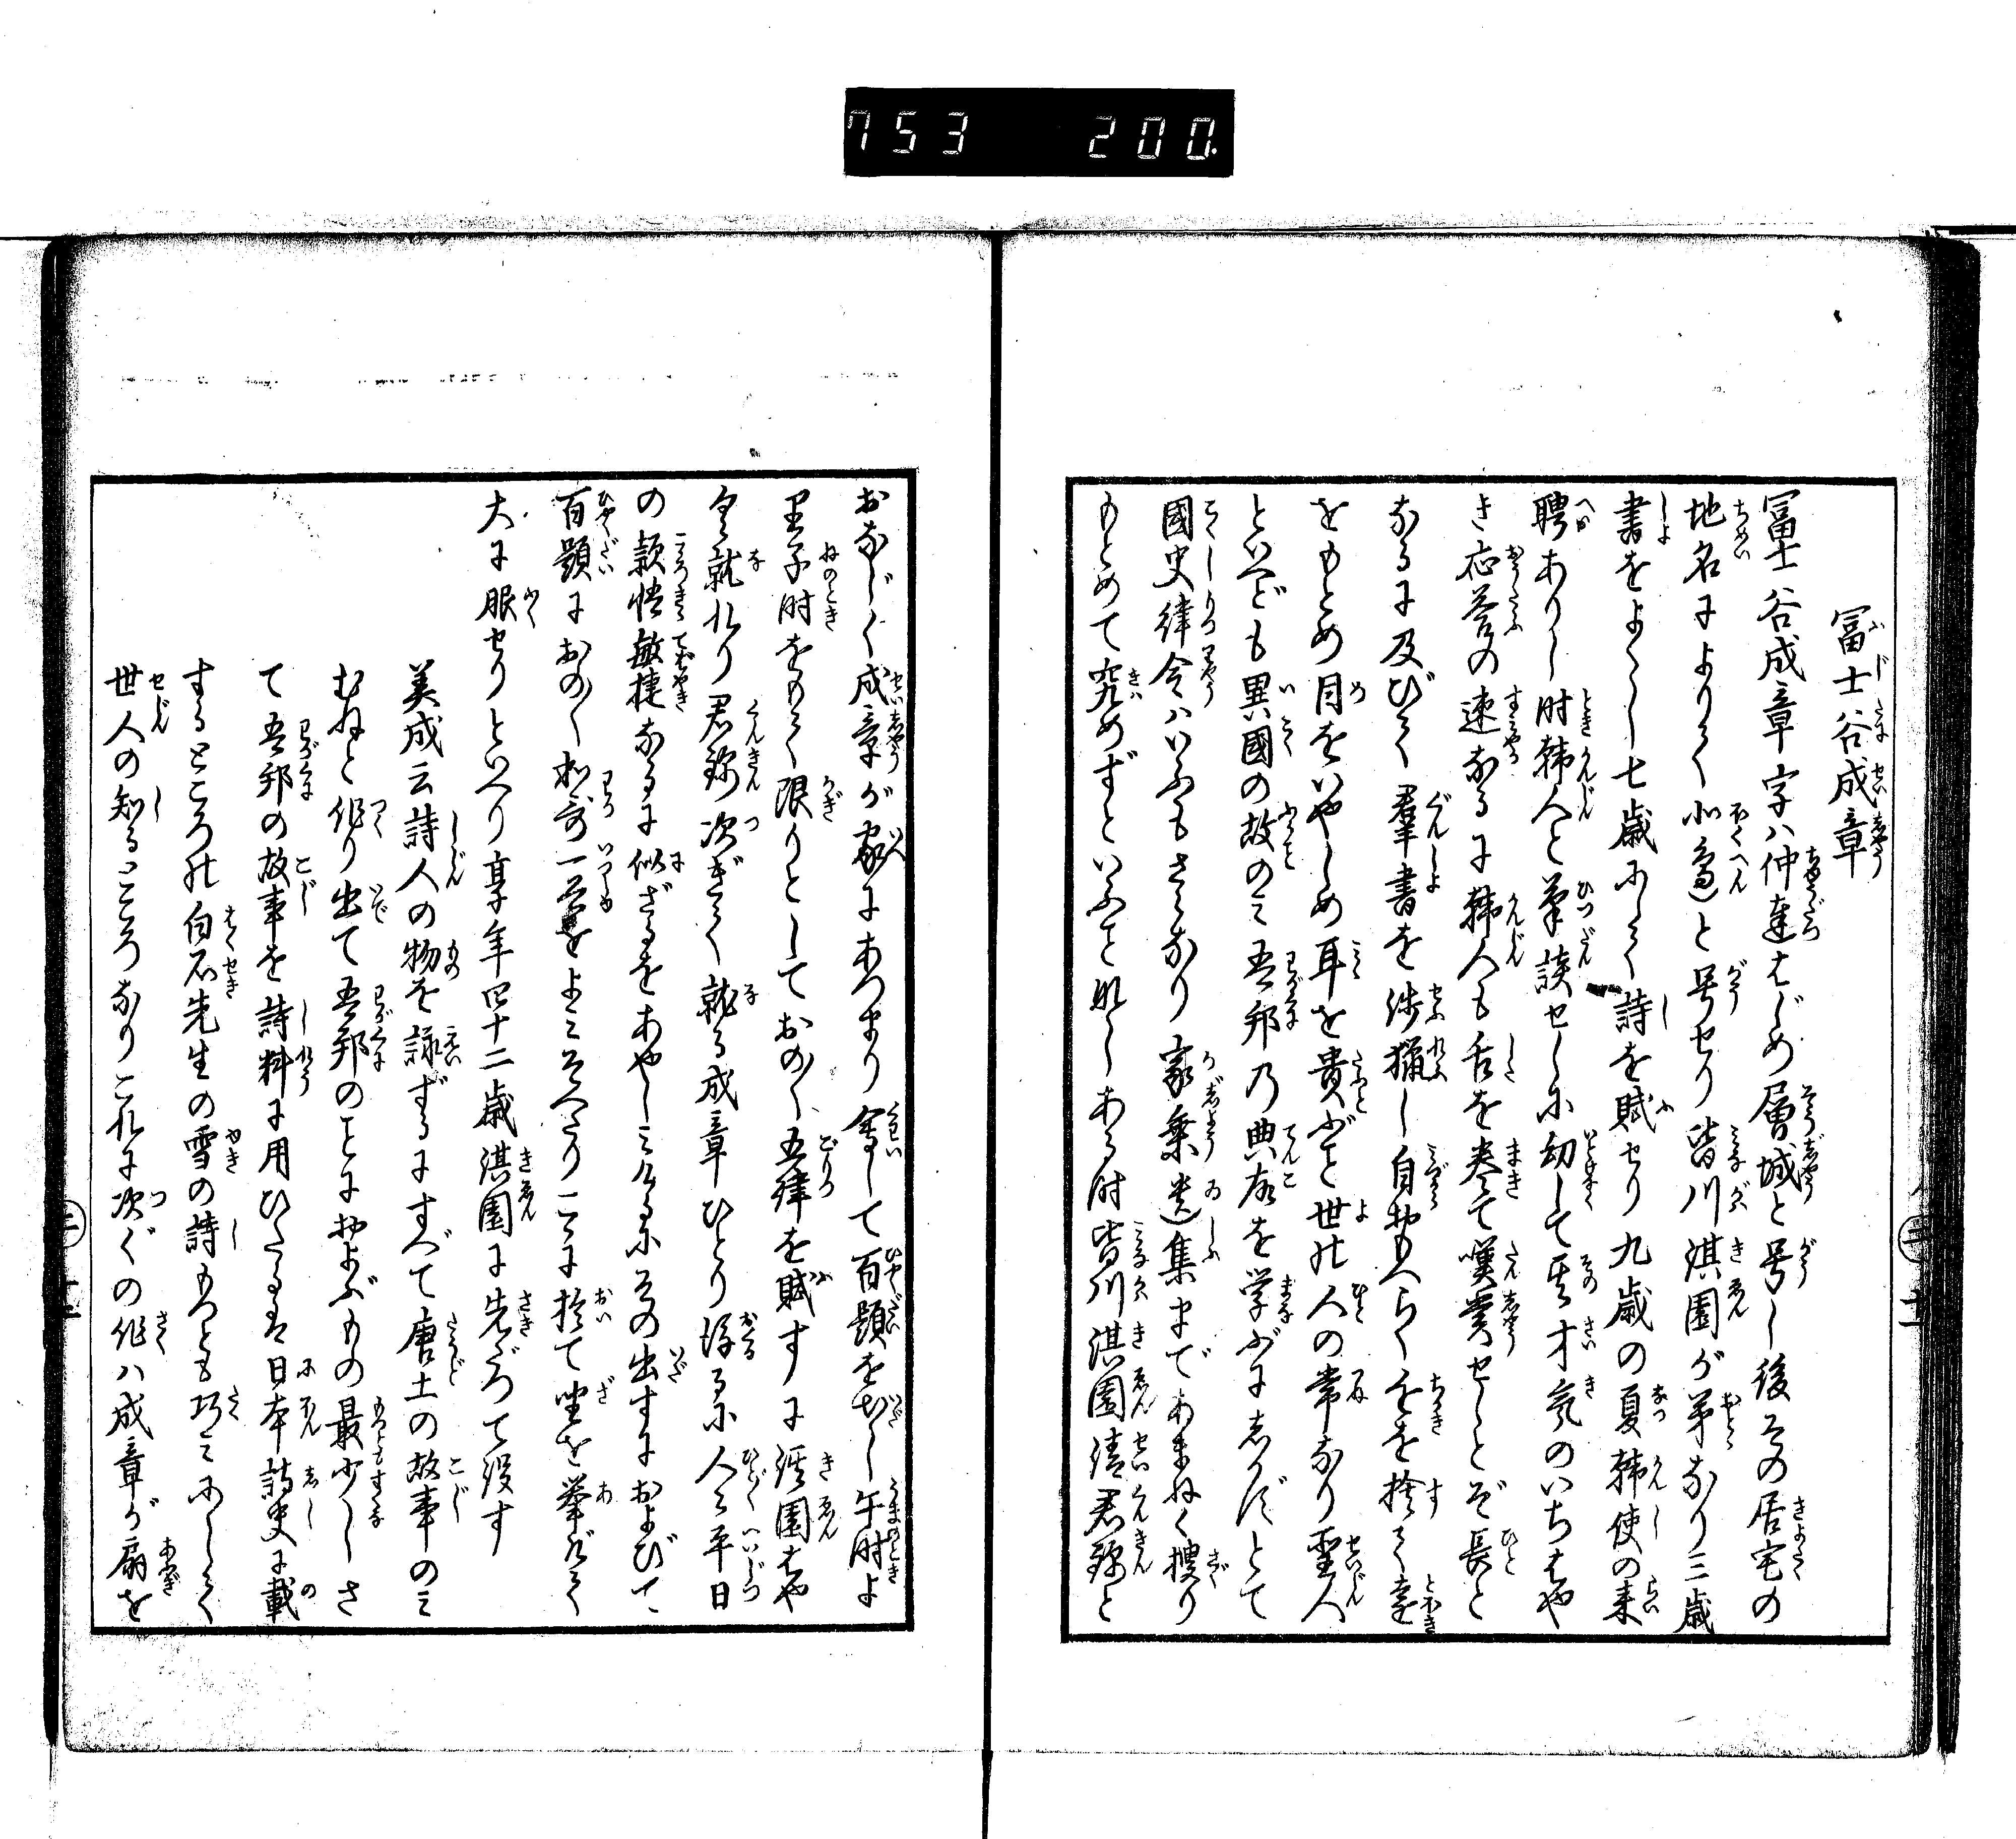 753 200
冨士谷成章
冨士谷成章字ハ仲達はじめ層城と号し後その居宅の
地名によりて北邊と号せり皆川淇園が弟なり三歳
書をよくし七歳にして詩を賦せり九歳の夏韓使の来
聘ありし時韓人と筆談せしに幼して其才気のいちはや
き応答の速なるに韓人も舌を巻て嘆賞せしとぞ長と
なるに及びて羣書を渉猟し自おもへらく近を捨て遠
をもとめ目をいやしめ耳を貴ぶと世の人の常なり聖人
といへども異國の故のミ吾邦乃典故を学ぶにしかじとて
國史律令ハいふもさらなり家乗遺集まであまねく捜り
もとめて究めずといふこと無しある時皆川淇園清君錦と
おなじく成章が家にあつまり會して百題を出し午時よ
里子時をもて限りとしておの〱五律を賦すに淇園はや
く就れり君錦次ぎて就る成章ひとり後るゝに人々平日
の款悟敏捷なるに似ざるをあやしミけるにその出すにおよびて
百題におの〱和哥一首をよミそへたりこゝに於て坐を挙げて
大に服せりといへり享年四十二歳淇園に先だつて没す
美成云詩人の物を詠ずるにすべて唐土の故事のミ
むねと作り出て吾邦のことにおよぶもの最少しさ
て吾邦の故事を詩料に用ひたるは日本詩史に載
するところの白石先生の雪の詩もつとも巧ミにして
世人の知るところなりこれに次ぐの作ハ成章が扇を